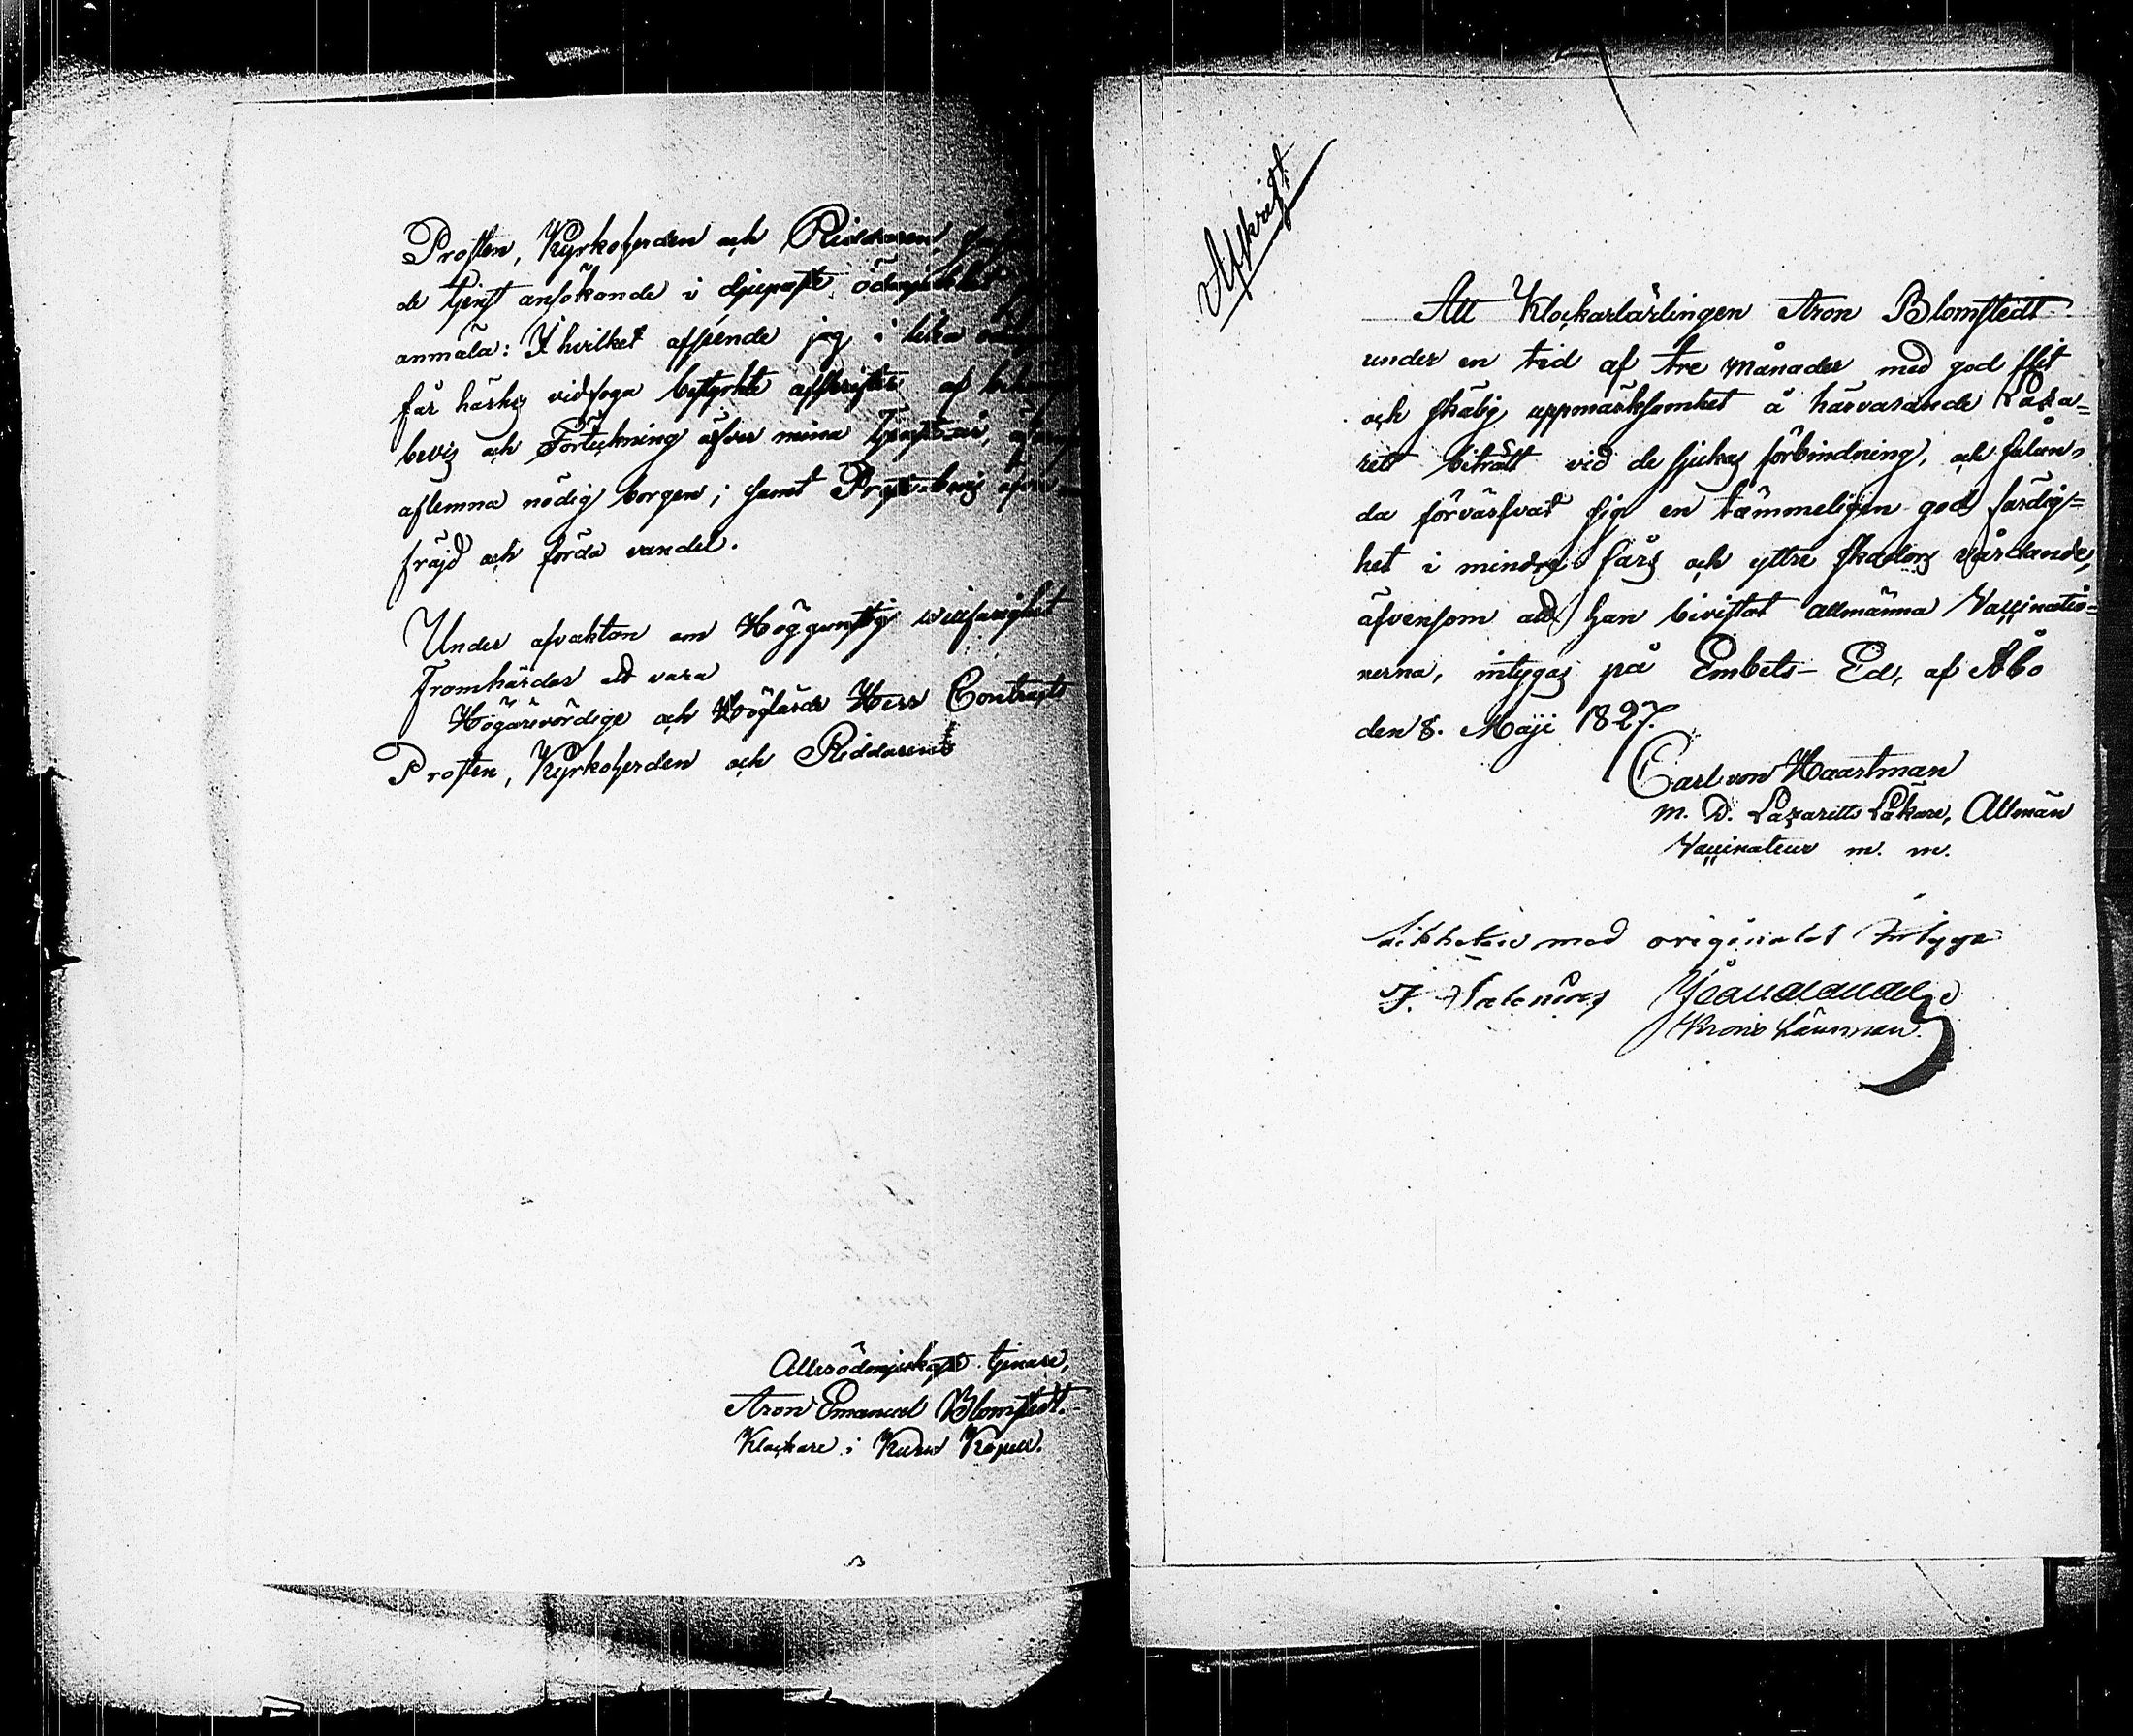 Prosten, Kyrkoherden och Riddaren,
de tjenst ansökande i djupaste ödmjukhet
anmäla: I hvilket afseende jag i lika
får härhos vidfoga bestyrkte afskrifter af
bevis och Förteckning öfver mina Tjensteår,
aflemna nödig borgen; samt Prestbevis öfver
fräjd och förda vandel.
Under afvaktan om Höggunstig willfarighet
Framhärdar att vara
Högärevördige och Höglärde Herr Contracts
Prosten, Kyrkoherden och Riddarens
Allerödmjukaste tjenare,
Aron Emanuel Blomstedt.
Klockare i Kuru Kapell.
Afskrift
Att Klockarlärlingen Aron Blomstedt
under en tid af tre månader med god flit
och skälig uppmärksamhet å härvarande Laza=
rett biträtt vid de sjukas förbindning, och sålun=
da förvärfvat sig en tämmeligen god färdig=
het i mindre sårs och yttre skadors vårdande,
äfvensom att han bivistat allmänna Vaccinatio=
nerna, intygas på Embets-Ed, af Åbo
den 8. Maji 1827.
Carl von Haartman
M. D. Lazaretts Läkare, Allmän
Vaccinateur m. m.
Likheten med originalet intyga
J. Salenius
Krono Länsman.